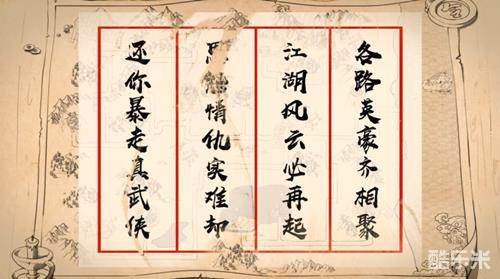 各路英豪齐相聚
江湖风云必再起
恩怨情仇实难却
还你暴走真武侠
酷乐米